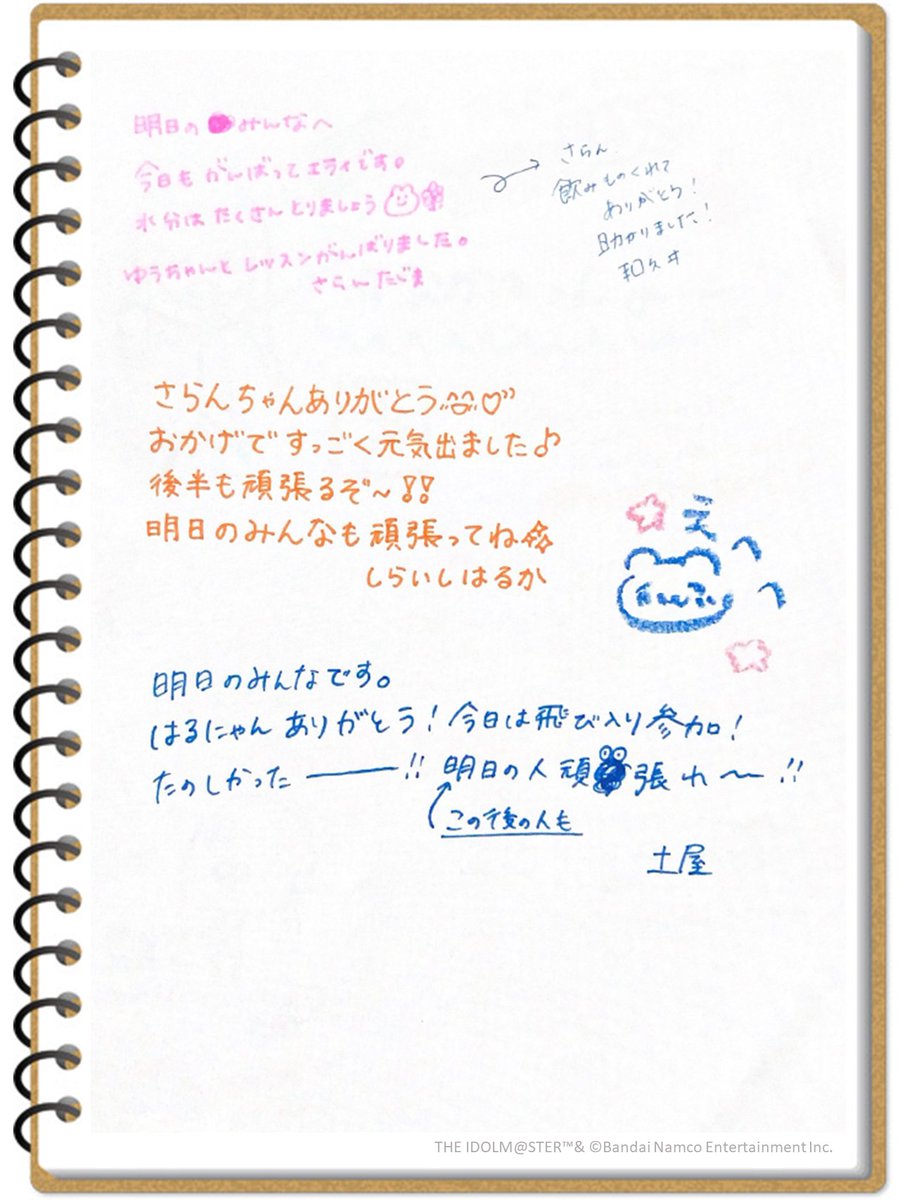 明日の みんなへ
今日も がんばってエライです。
水分は たくさん とりましょう
ゆうちゃんと レッスンがんばりました。
さらん たじま
さらん
飲みものくれて
ありがとう!
助かりました!
和久井
さらんちゃんありがとう♡
おかげで すっごく元気出ました♪
後半も頑張るぞ〜!!
明日のみんなも頑張ってね
しらいしはるか
明日のみんなです。
はるにゃん ありがとう! 今日は飛び入り参加!
たのしかった ー !! 明日の人 頑張れ〜 !!
この後の人も
土屋
THE IDOLM@STER™& ©Bandai Namco Entertainment Inc.